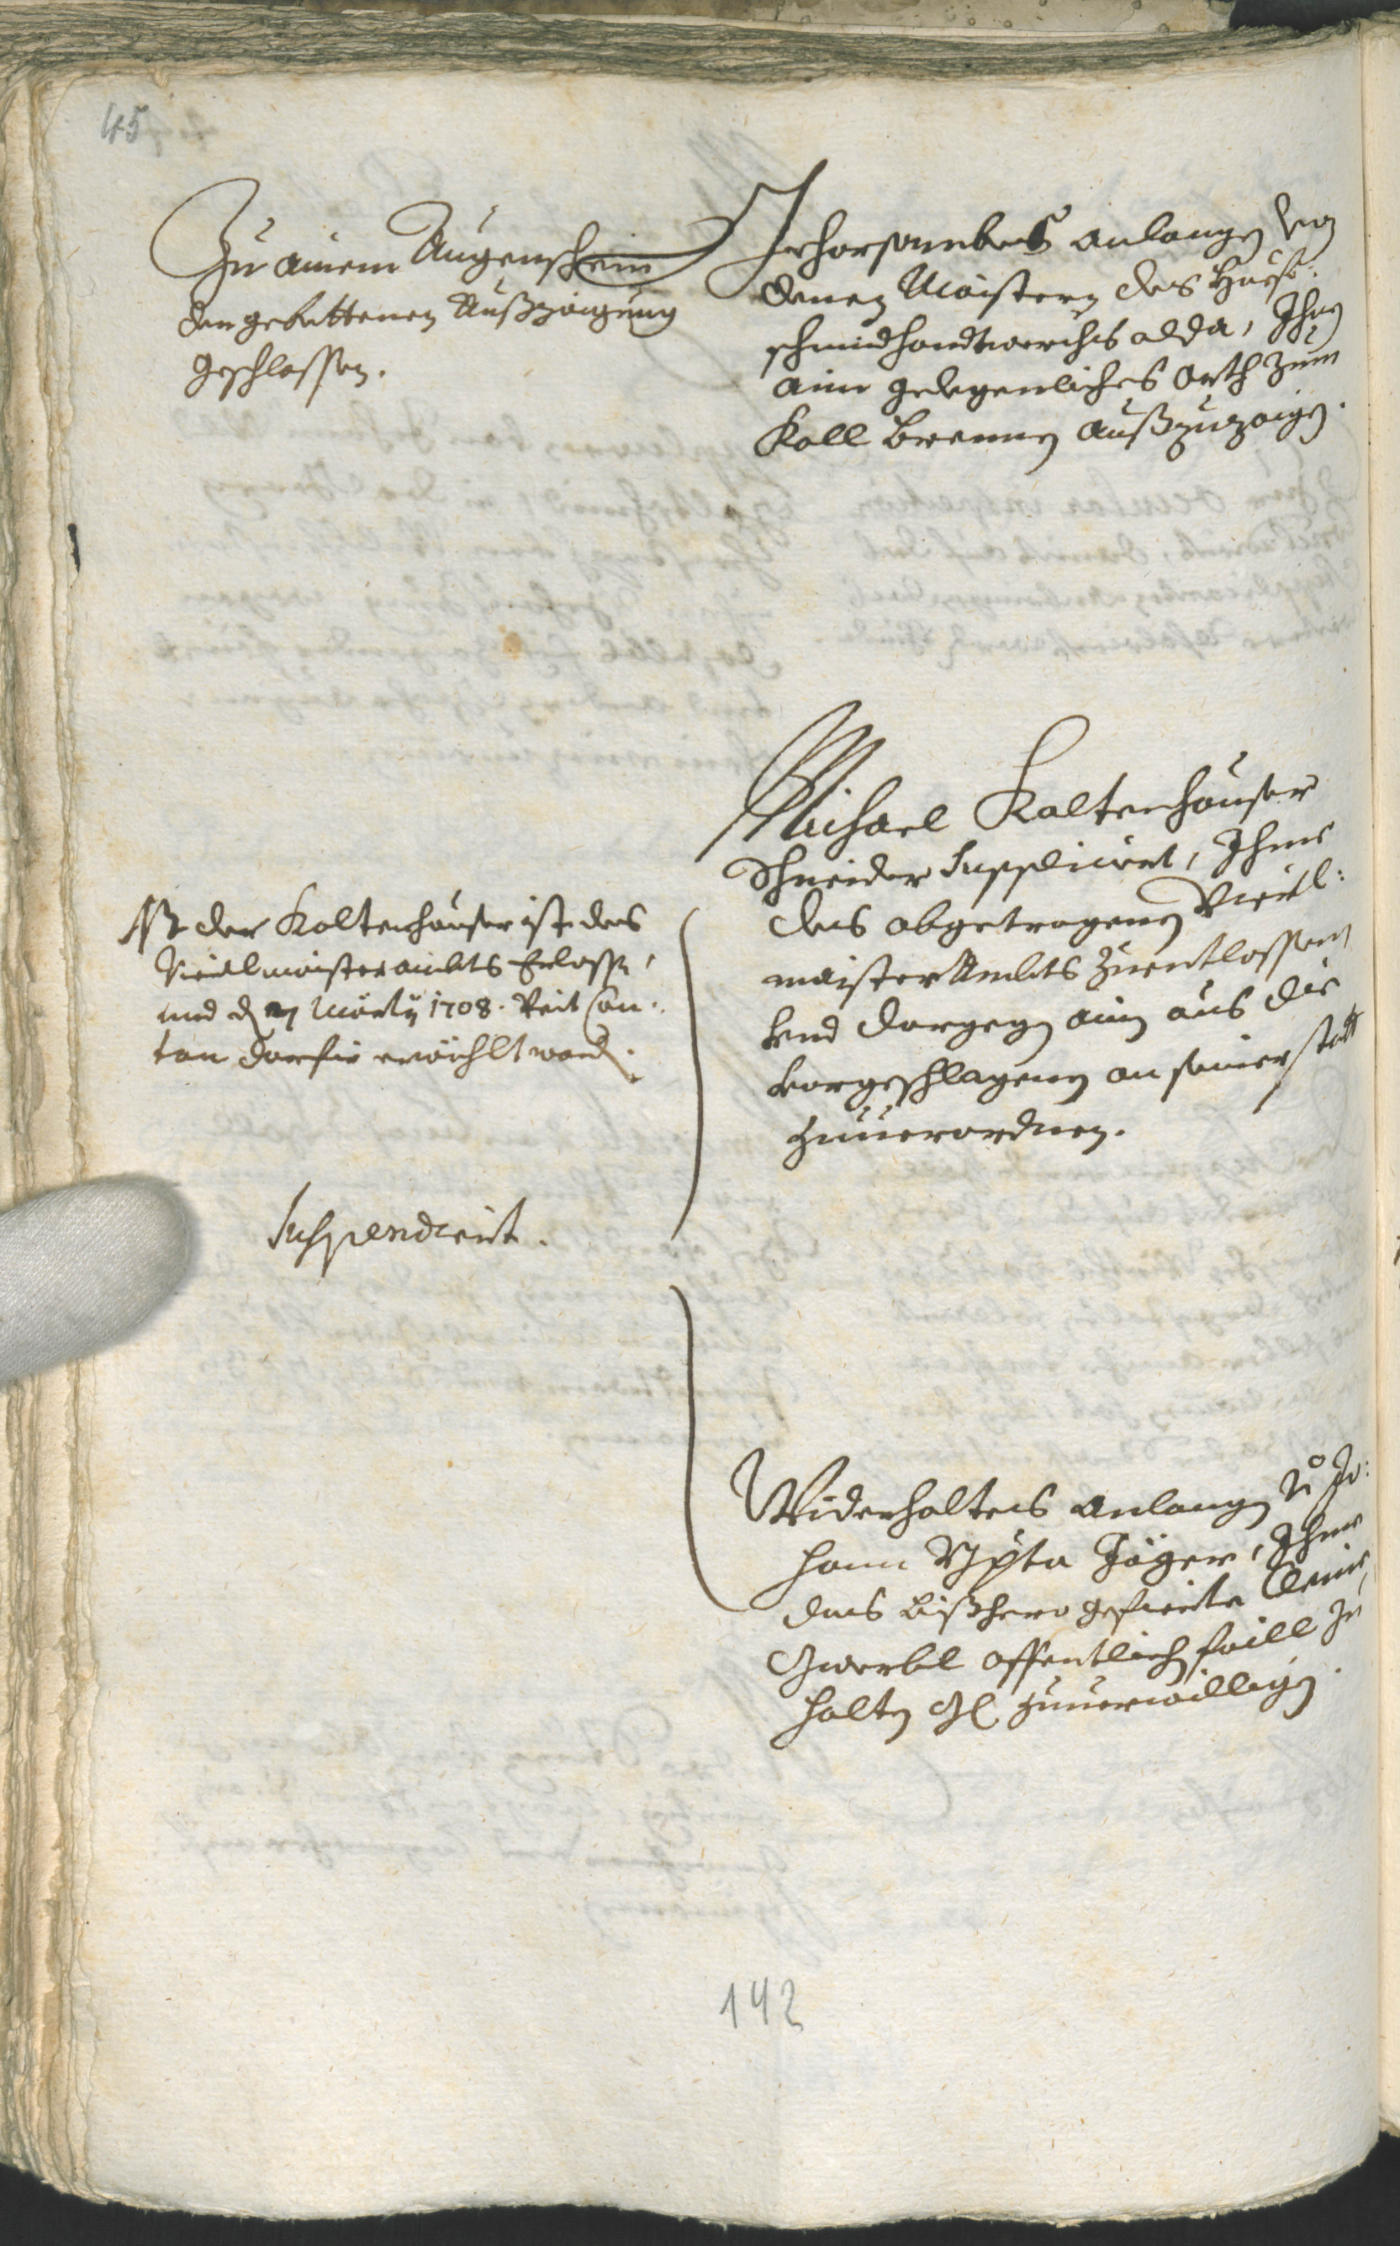 45
Zu ainem Augenschein
der gebettenen Außzaigung
geschlossen.
Gehorsambes anlangen von
denen Maistern des Huef:
schmidhandtwerchs alda, Ihnen
ain gelegenliches Orth zum
Koll brennen außzuzaigen.
Michael Kaltenhauser
Schneider Supplicirt, Ihme
des abgetragenen Viertl:
maister Ambts zuentlassen
vnd dargegen ain aus die
vorgeschlagenen an seiner statt
zuuerordnen.
NB der Kaltenhauser ist des
Viertlmaisterambts Erlassen,
und den 7 Marty 1708. Veit
dorfür erwöhlt worden.
Suspendirt.
Widerholtes anlangen
hann Jäger, Ihme
das bißhero gefierte
Gwerbl offentlich faill zu
halten zuuerwilligen.
142